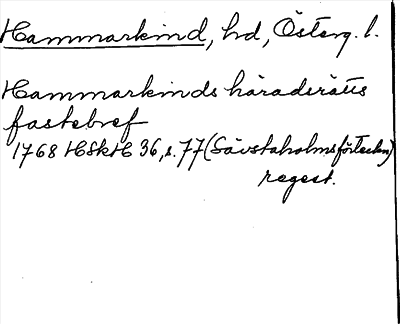 Hammarkind, hd, Österg. l.
Hammarkinds häradsrätts
fastebref
1768 HSkH 36, s. 77 (Sävstaholmsförtecken)
regest.